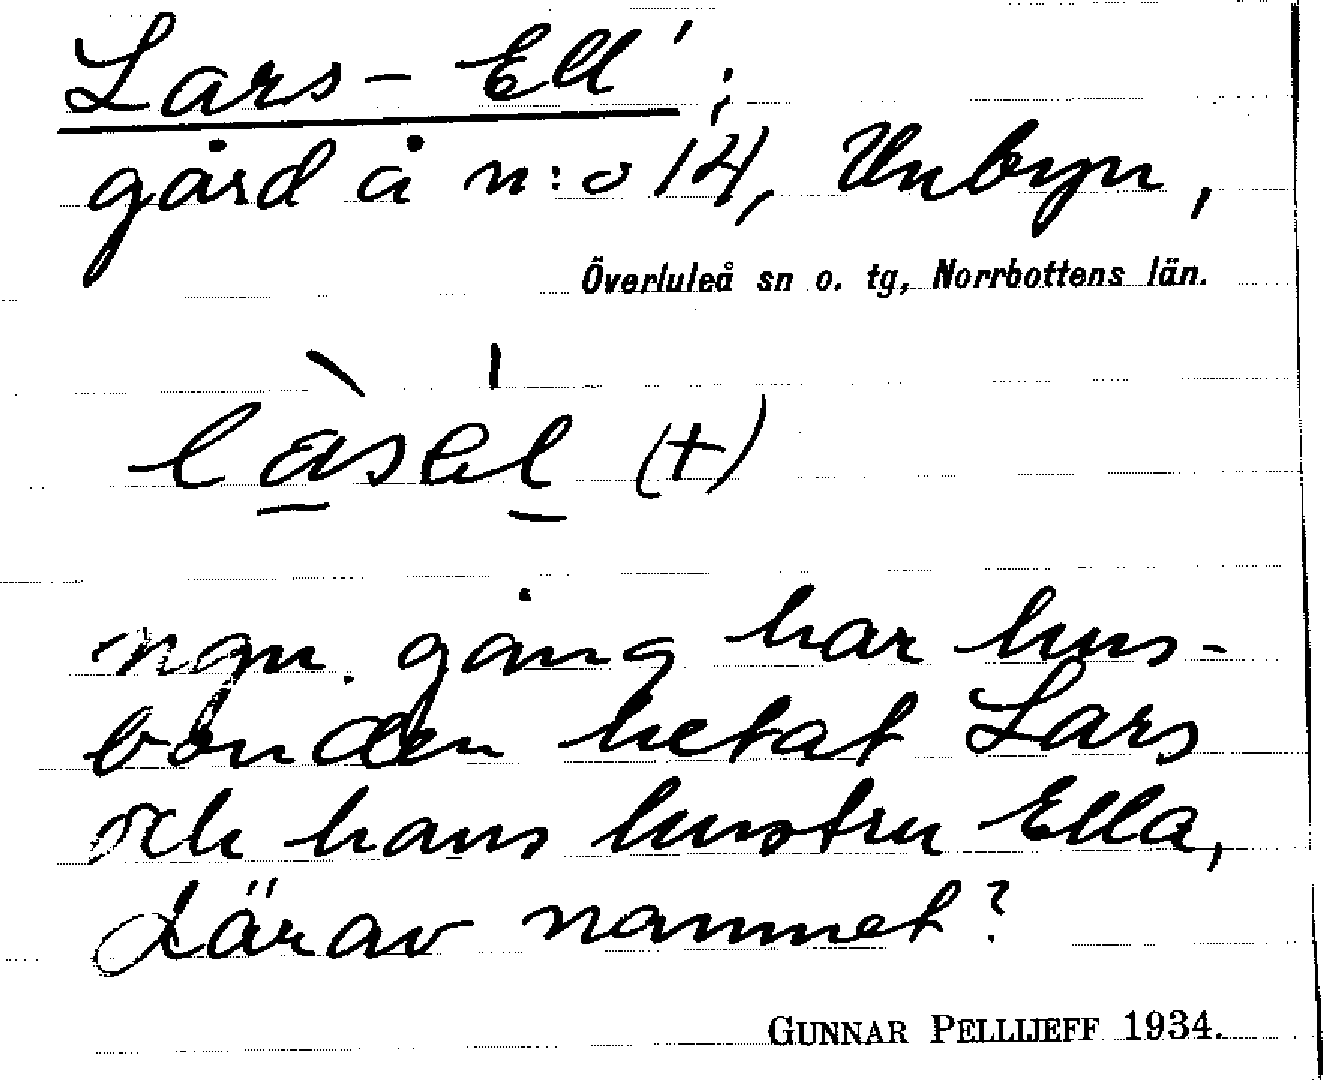 Lars-Ell';
gård å n:o 14, Unbyn,
Överluleå sn o. tg, Norrbottens län.
làsél (+)
ngn. gång har hus-
bonden hetat Lars
och hans hustru Ella,
därav namnet?
GUNNAR PELLIJEFF 1934.